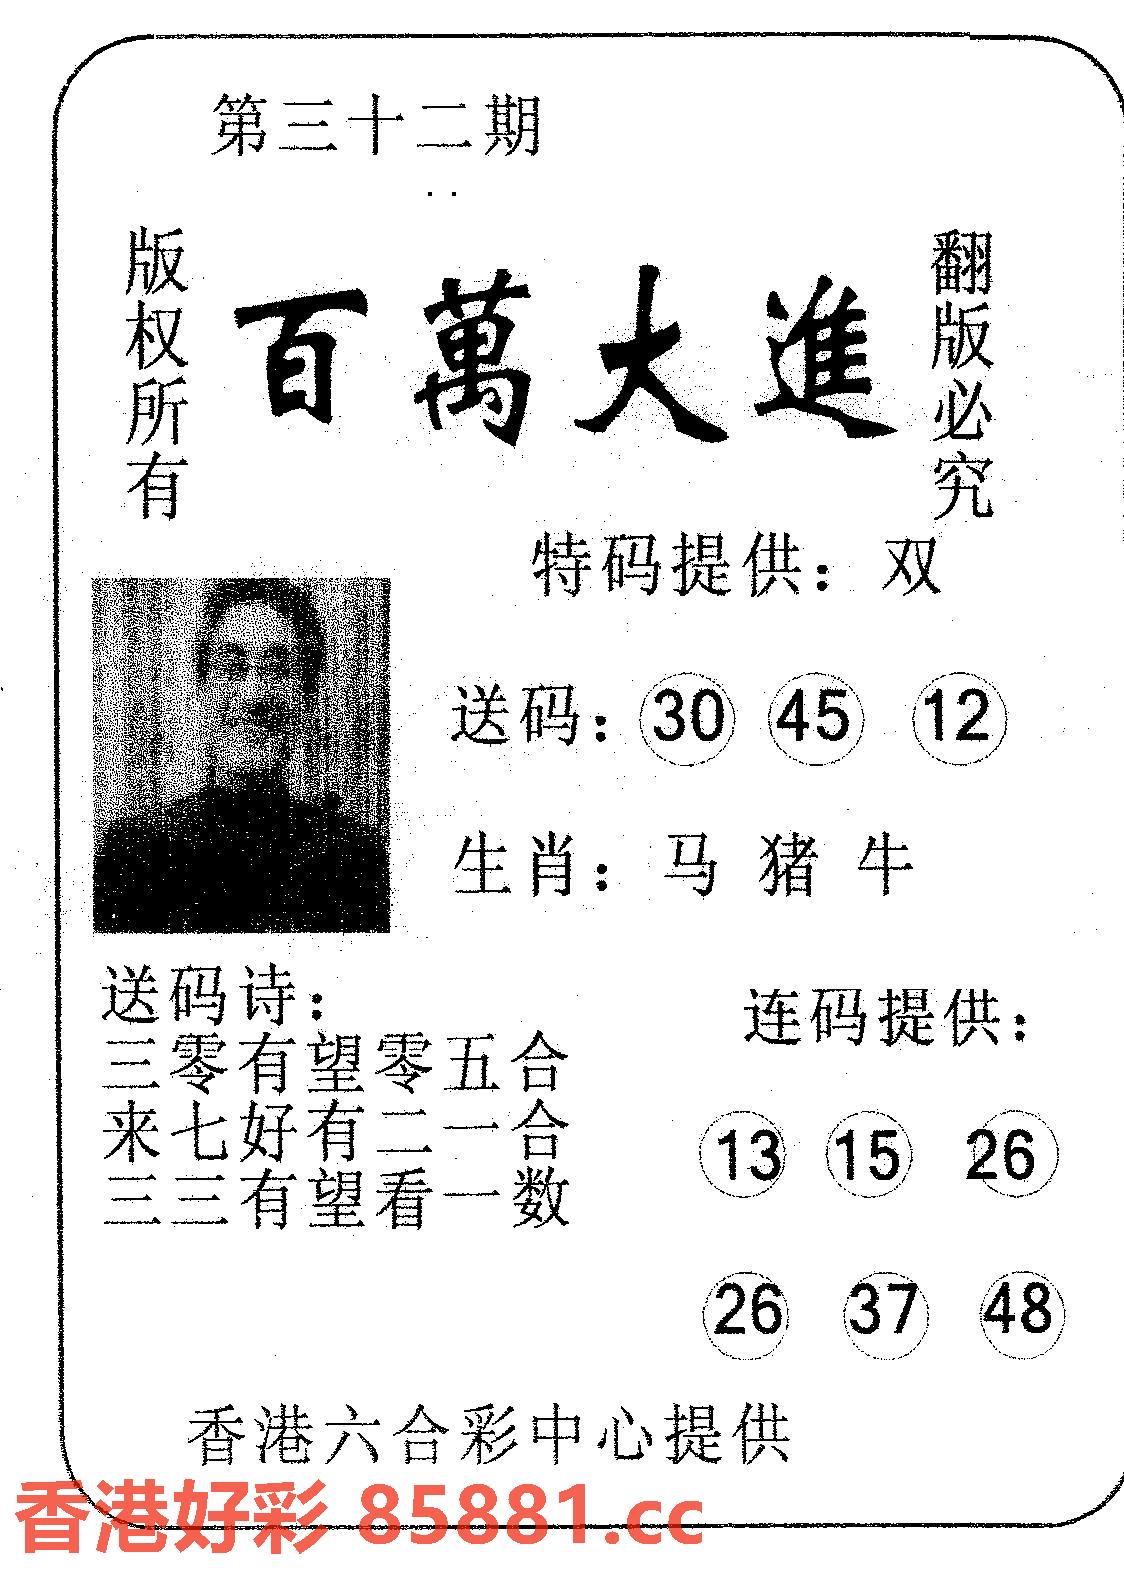 第三十二期
版权所有
百萬大進
翻版必究
特码提供：双
送码：30 45 12
生肖：马 猪 牛
送码诗：
三零有望零五合
来七好有二一合
三三有望看一数
连码提供：
13 15 26
26 37 48
香港六合彩中心提供
香港好彩 85881.cc